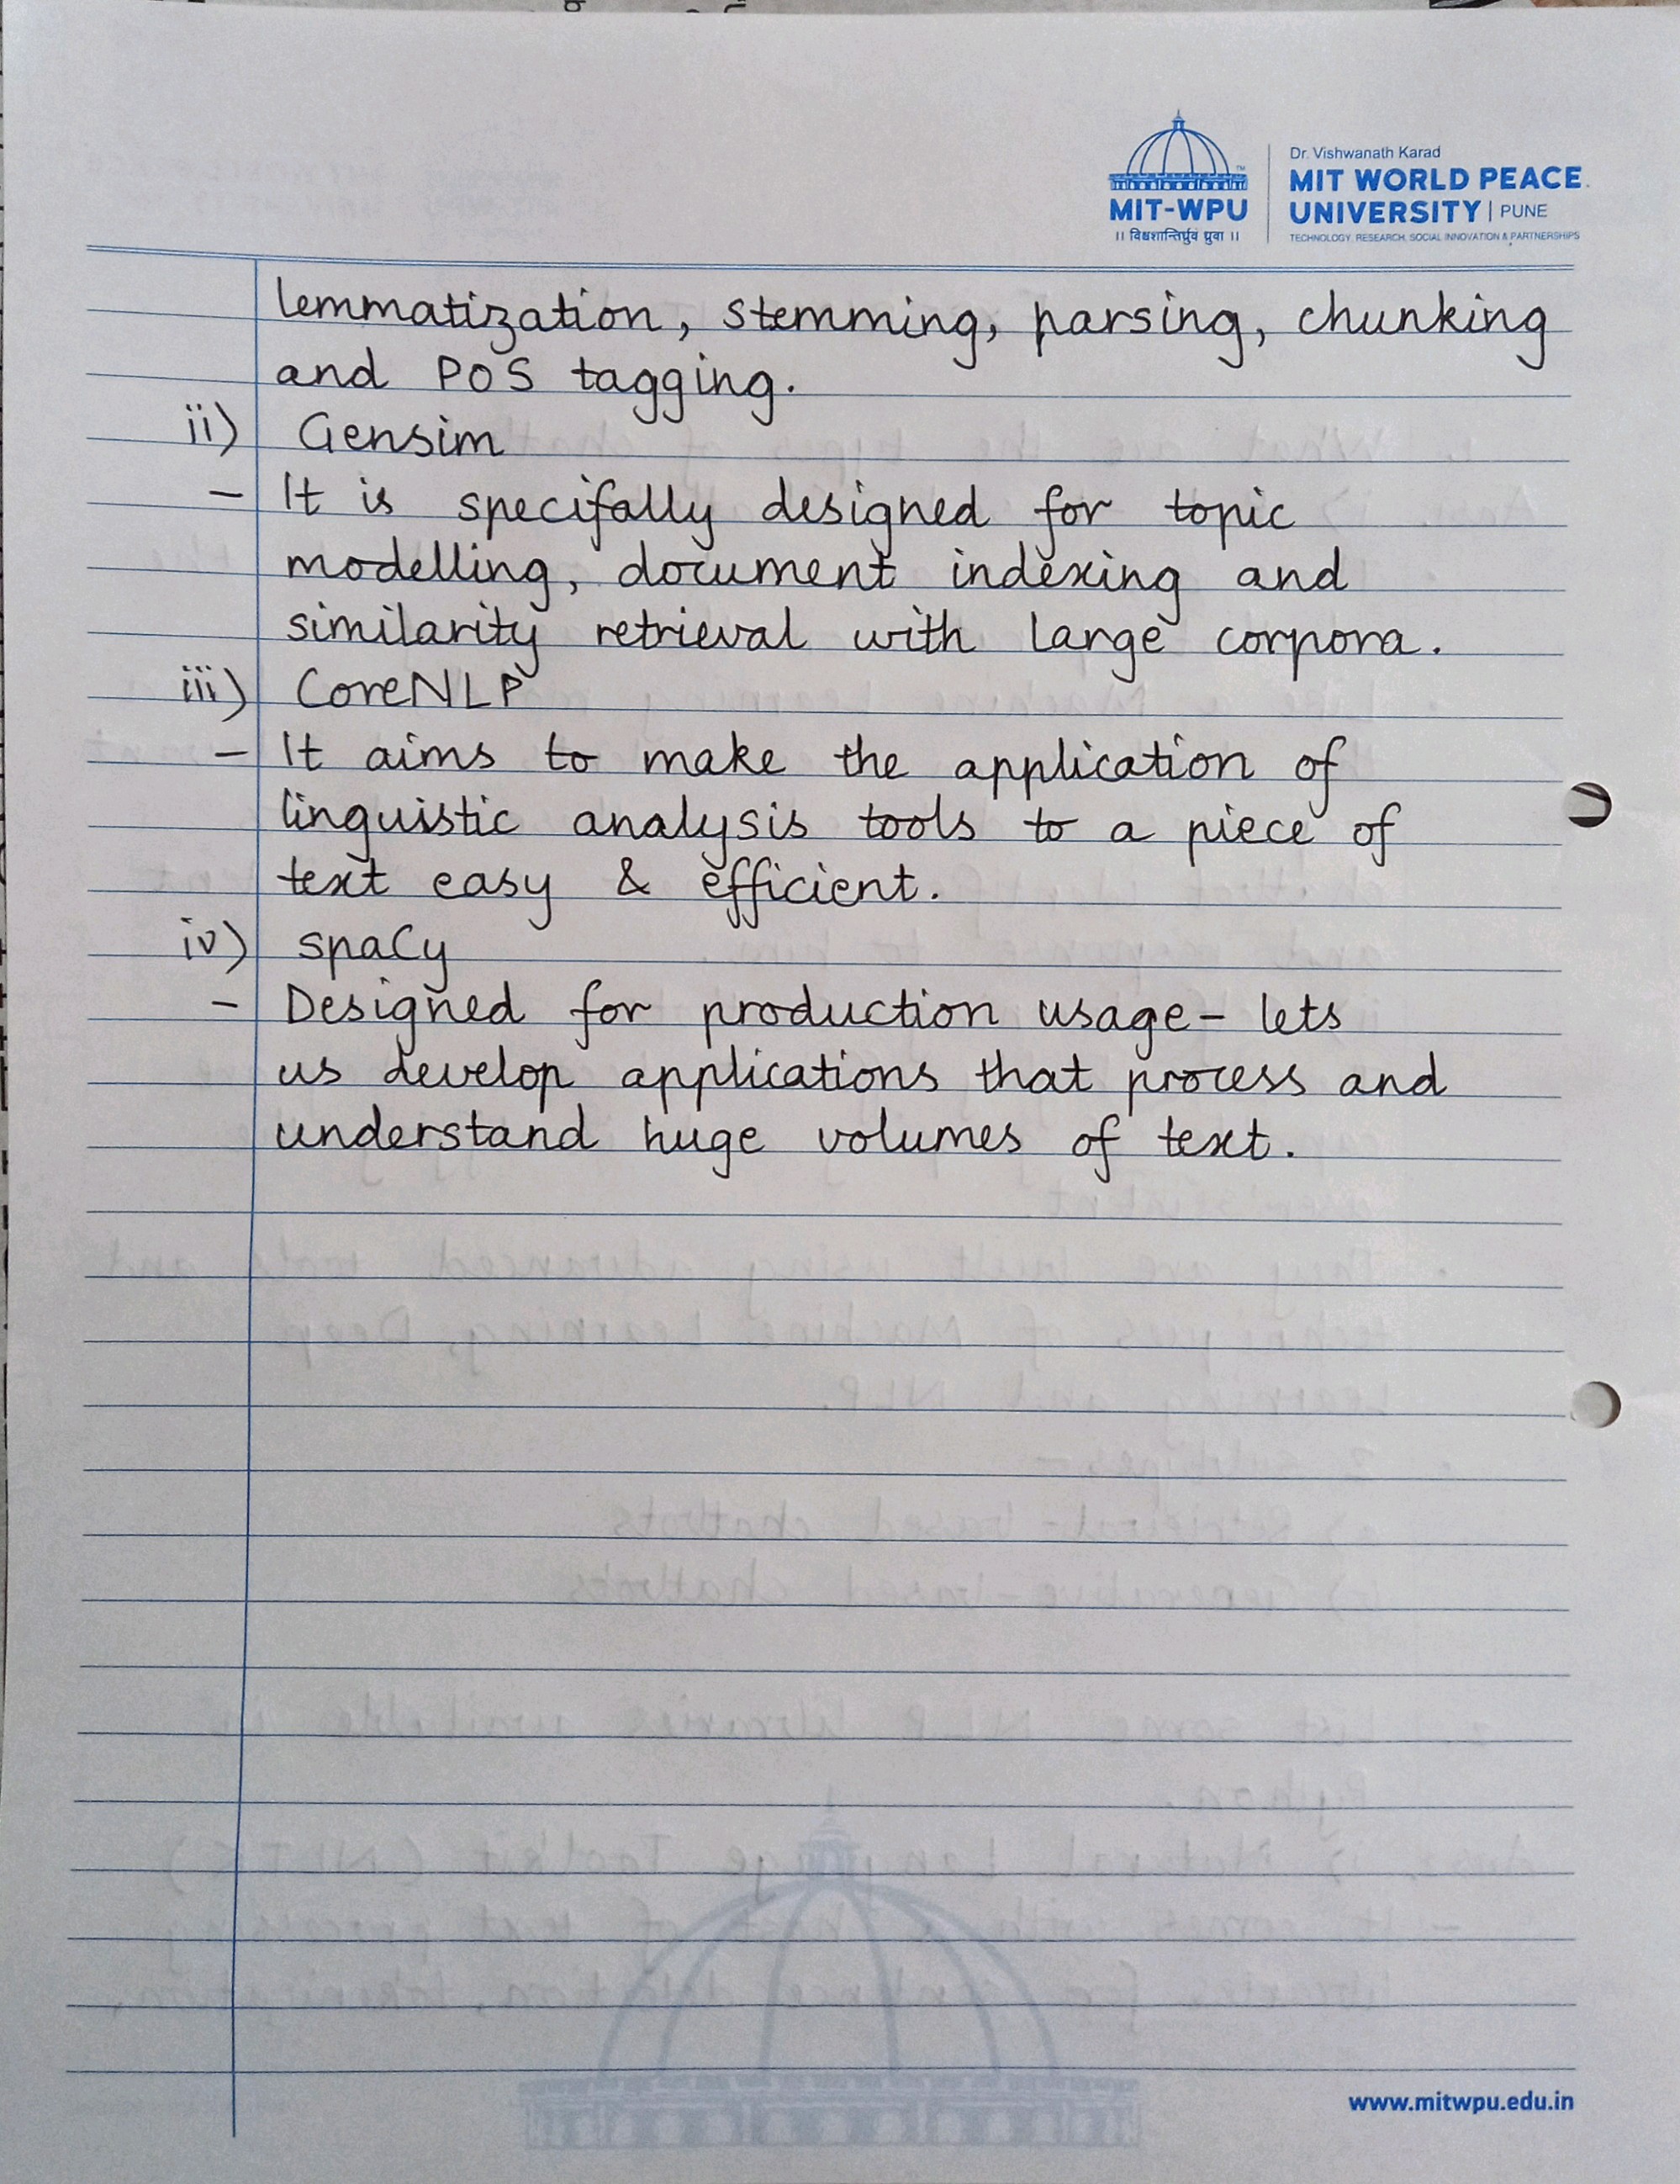 Dr. Vishwanath Karad
MIT WORLD PEACE
UNIVERSITY | PUNE
TECHNOLOGY, RESEARCH, SOCIAL INNOVATION & PARTNERSHIPS
MIT-WPU
lemmatization, stemming, parsing, chunking
and POS tagging.
ii) Gensim
- It is specifally designed for topic
modelling, document indexing and
similarity retrieval with large corpora.
iii) CoreNLP
- It aims to make the application of
linguistic analysis tools to a piece of
text easy & efficient.
iv) spaCy
- Designed for production usage - lets
us develop applications that process and
understand huge volumes of text.
www.mitwpu.edu.in